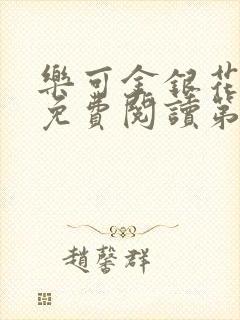 樂可金銀花
免費閱讀第
趙馨群